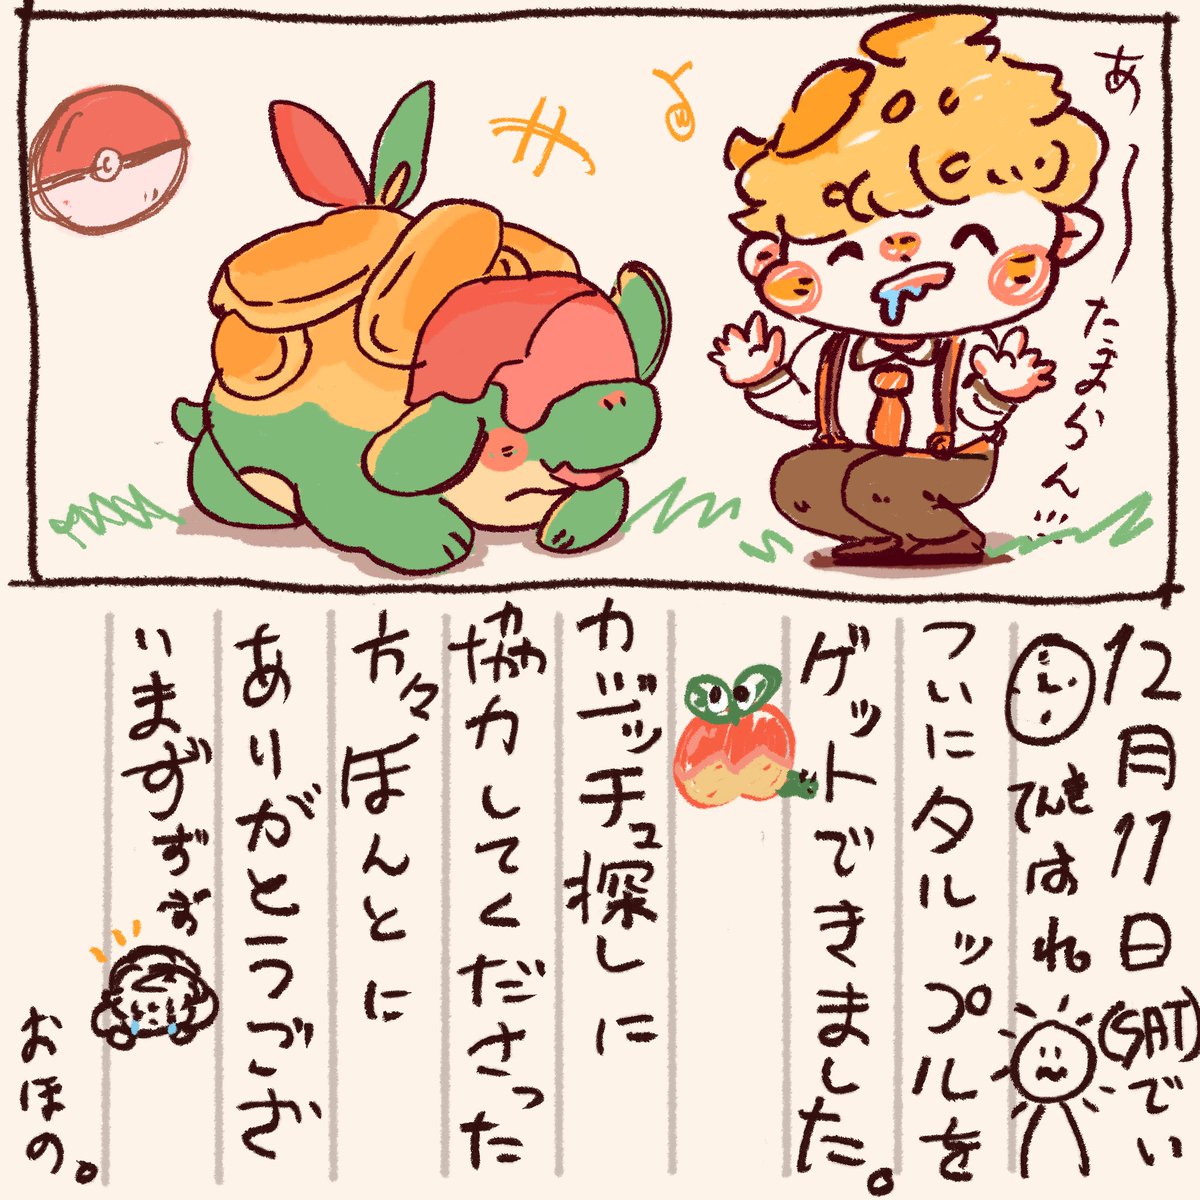 あ〜たまらん…
12月11日(SAT)でい
てんきはれ
ついにタルップルを
ゲットできました。
カジッチュ探しに
協力してくださった
方々ほんとに
ありがとうござ
いまずずず
おほの。